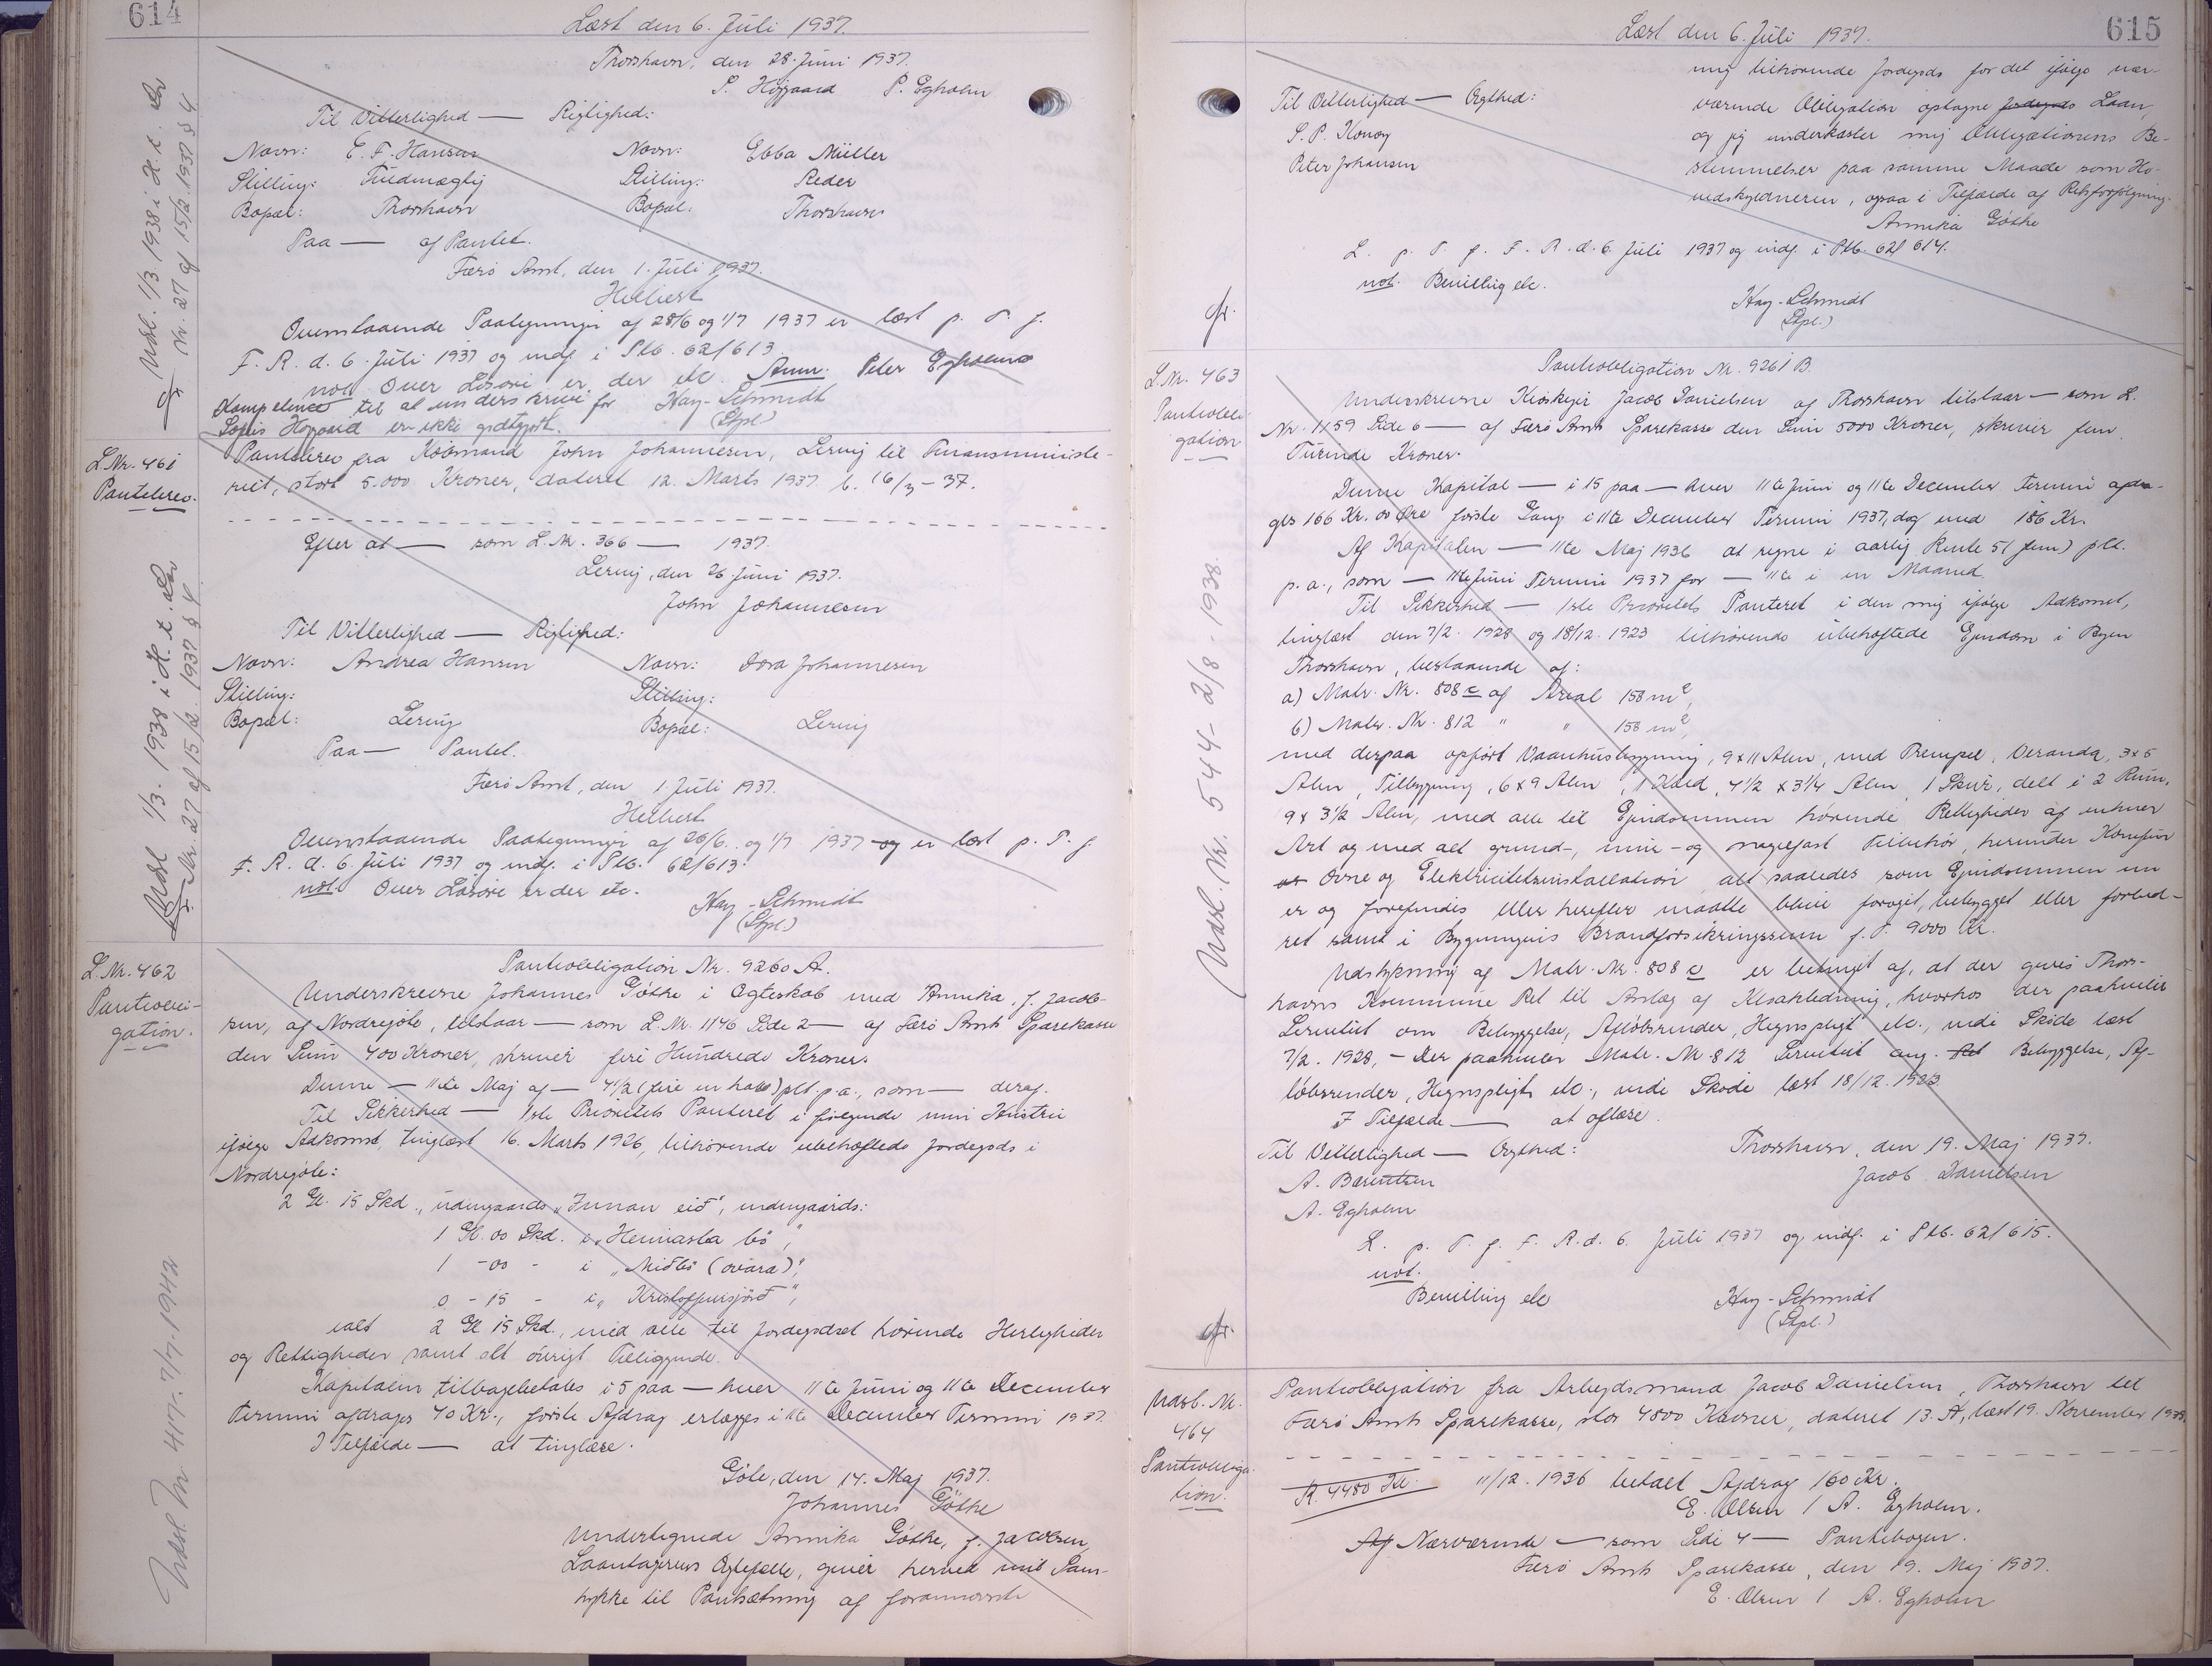 614
Læst den 6. Juli 1937.
Thorshavn, den 28. Juni 1937.
S. Höjgaard P. Egholm
Til Vitterlighed — Rigtighed:
Navn: E. F. Hansen Navn: Ebba Müller
Stilling: Fuldmægtig Stilling: Reder
Bopæl: Thorshavn Bopæl: Thorshavn
Paa — af Pantet.
Færö Amt, den 1. Juli 1937.
Hilbert
Ovenstaaende Paategninger af 28/6 og 1/7 1937 er læst p. T. f.
F. R. d. 6. Juli 1937 og indf. i Ptb. 62/613.
not. Over Lösöre er der etc. Anm. Peter Egholms
Kompetence til at underskrive for Hay-Schmidt
Sofus Höjgaard er ikke godtgjort. (Stpl.)
Udsl. 1/3. 1938 i H. t. Lov
Nr. 27 af 15/2. 1937 § 4
L. Nr. 461
Pantebrev.
Pantebrev fra Köbmand John Johannesen, Lervig til Finansministe-
riet, stort 5.000 Kroner, dateret 12. Marts 1937 l. 16/3 - 37.
Efter at — som L. Nr. 366 — 1937.
Lervig, den 26 Juni 1937.
John Johannesen
Til Vitterlighed — Rigtighed:
Navn: Andrea Hansen Navn: Dora Johannesen
Stilling: Stilling:
Bopæl: Lervig Bopæl: Lervig
Paa — Pantet.
Færö Amt, den 1 Juli 1937.
Hilbert
Ovenstaaende Paategninger af 26/6. og 1/7 1937 og er læst p. T. f
F. R. d. 6. Juli 1937 og indf. i Ptb. 62/613.
not. Over Lösöre er der etc.
Hay-Schmidt
(Stpl.)
Udsl 1/3. 1938 i H. t. Lov
Nr. 27 af 15/2. 1937 § 4
L. Nr. 462
Pantobli-
gation.
Pantobligation Nr. 9260 A.
Underskrevne Johannes Göthe i Ægteskab med Annika, f. Jacob-
sen, af Nordregöte, tilstaar — som L. Nr. 1146 Side 2 — af Færö Amts Sparekasse
den Sum 400 Kroner, skriver fire Hundrede Kroner.
Denne — 11te Maj af — 4 1/2 (fire en halv) pCt. p. a., som — deraf.
Til Sikkerhed — 1ste Prioritets Panteret i fölgende min Hustru
ifölge Adkomst, tinglæst 16. Marts 1926, tilhörende ubehæftede Jordegods i
Nordregöte:
2 Gl. 15 Skd., udengaards „Innan eið“, indengaards:
1 Gl. 00 Skd. i „Heimasta bö“,
1 - 00 - i „Miðbö (övara)“,
0 - 15 - i „Kristoffursjörð“,
ialt 2 Gl 15 Skd., med alle til Jordegodset hörende Herligheder
og Rettigheder samt alt övrigt Tilliggende.
Kapitalen tilbagebetales i 5 paa — hver 11te Juni og 11te December
Termin afdrages 40 Kr., förste Afdrag erlægges i 11te December Termin 1937.
I Tilfælde — at tinglæse.
Göte, den 14. Maj 1937.
Johannes Göthe
Undertegnede Annika Göthe, f. Jacobsen,
Laantagerens Ægtefælle, giver herved mit Sam-
tykke til Pantsætning af forannævnte
Udsl. Nr. 417 - 7/7 - 1942
615
Læst den 6. Juli 1937.
mig tilhörende Jordegods for det ifölge nær-
værende Obligation optagne Jordegods Laan,
og jeg underkaster mig Obligationens Be-
stemmelser paa samme Maade som Ho-
vedskyldneren, ogsaa i Tilfælde af Retsforfölgning.
Annika Göthe
Til Vitterlighed — Ægthed:
S. P. Konoy
Peter Johansen
L. p. T. f. F. R. d. 6. Juli 1937 og indf. i Ptb. 62/614.
not. Bevilling etc.
Hay-Schmidt
(Stpl.)
L. Nr. 463
Pantobli-
gation
Pantobligation Nr. 9261 B.
Underskrevne Kioskejer Jacob Danielsen af Thorshavn tilstaar — som L.
Nr. 1159 Side 6 — af Færö Amts Sparekasse den Sum 5000 Kroner, skriver fem
Tusinde Kroner.
Denne Kapital — i 15 paa — hver 11te Juni og 11te December Termin afdra-
ges 166 Kr. 00 Öre förste Gang i 11te December Termin 1937, dog med 186 Kr.
Af Kapitalen — 11te Maj 1936 at regne i aarlig Rente 5 (fem) pCt.
p. a., som — 11te Juni Termin 1937 for — 11te i en Maaned.
Til Sikkerhed — 1ste Prioritets Panteret i den mig ifölge Adkomst,
tinglæst den 7/2. 1928 og 18/12. 1923 tilhörende ubehæftede Ejendom i Byen
Thorshavn, bestaaende af:
a) Matr. Nr. 808 c af Areal 158 m²,
b) Matr. Nr. 812 " " 158 m²,
med derpaa opfört Vaanhusbygning, 9 x 11 Alen, med Trempel, Veranda, 3 x 5
Alen, Tilbygning, 6 x 9 Alen, 1 Kvist, 4 1/2 x 3 1/4 Alen, 1 Skur, delt i 2 Rum,
9 x 3 1/2 Alen, med alle til Ejendommen hörende Rettigheder af enhver
Art og med alt grund-, mur- og nagelfast Tilbehör, herunder Komfur
Ovne og Elektricitetsinstallation, alt saaledes som Ejendommen nu
er og forefindes eller herefter maatte blive foröget, bebygget eller forbed-
ret samt i Bygningens Brandforsikringssum f. T. 9000 Kr.
Udstykning af Matr. Nr. 808 c er betinget af, at der gives Thors-
havns Kommune Ret til Anlæg af Kloakledning, hvorhos der paahviler
Servitut om Bebyggelse, Aflöbsrender, Hegnspligt etc., vide Sköde læst
7/2. 1928, - Der paahviler Matr. Nr 812 Servitut ang. Bebyggelse, Af-
löbsrender, Hegnspligt etc., vide Sköde læst 18/12. 1923.
I Tilfælde — at aflæse.
Til Vitterlighed — Ægthed: Thorshavn, den 19. Maj 1937.
A. Barentsen Jacob Danielsen
A. Egholm
L. p. T. f. F. R. d. 6. Juli 1937 og indf. i Ptb. 62/615.
not.
Bevilling etc
Hay-Schmidt
(Stpl.)
Udsl. Nr. 544 - 2/8 - 1938
Udsl. Nr.
464
Pantobliga-
tion.
Pantobligation fra Arbejdsmand Jacob Danielsen, Thorshavn til
Færö Amts Sparekasse, stor 4800 Kroner, dateret 13. læst 19. November
R. 4480 Kr. 11/12. 1936 betalt Afdrag 160 Kr.
E. Olsen / A. Egholm.
Nærværende — som Side 4 — Pantebogen.
Færö Amts Sparekasse, den 19. Maj 1937.
E. Olsen / A. Egholm